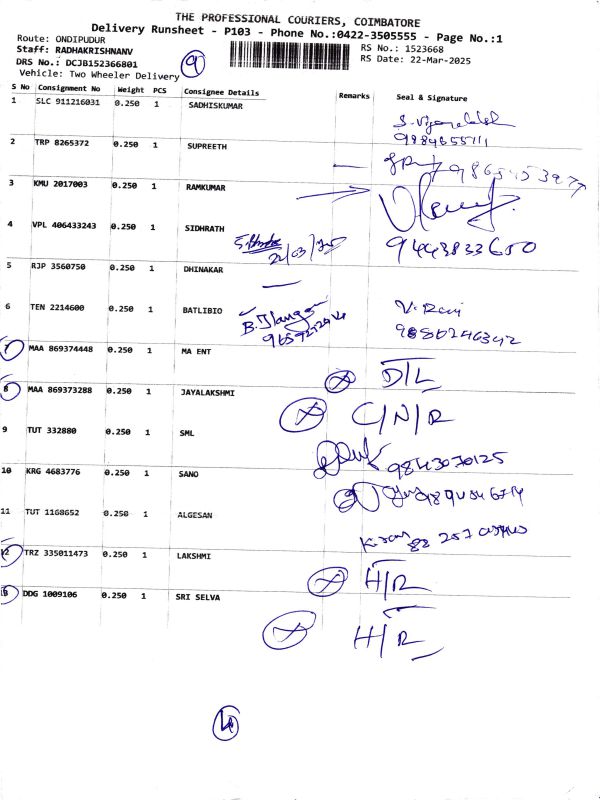 THE PROFESSIONAL COURIERS, COIMBATORE
Delivery Runsheet - P103 - Phone No.:0422-3505555 - Page No.:1
Route: ONDIPUDUR
RS No.: 1523668
Staff: RADHAKRISHNANV
RS Date: 22-Mar-2025
DRS No.: DCJB152366801
9
Vehicle: Two Wheeler Delivery
S No Consignment No Weight PCS Consignee Details Remarks Seal & Signature
1 SLC 911216031 0.250 1 SADHISKUMAR
9884655111
2 TRP 8265372 0.250 1 SUPREETH
3 KMU 2017003 0.250 1 RAMKUMAR
4 VPL 406433243 0.250 1 SIDHRATH
22/03/25
9443833650
5 RJP 3560750 0.250 1 DHINAKAR
6 TEN 2214600 0.250 1 BATLIBIO
B. Ilango
V. Ravi
9886246342
7 MAA 869374448 0.250 1 MA ENT
D/L
8 MAA 869373288 0.250 1 JAYALAKSHMI
C/N/R
9 TUT 332880 0.250 1 SML
9843070125
10 KRG 4683776 0.250 1 SANO
11 TUT 1168652 0.250 1 ALGESAN
12 TRZ 335011473 0.250 1 LAKSHMI
H/R
13 DDG 1009106 0.250 1 SRI SELVA
H/R